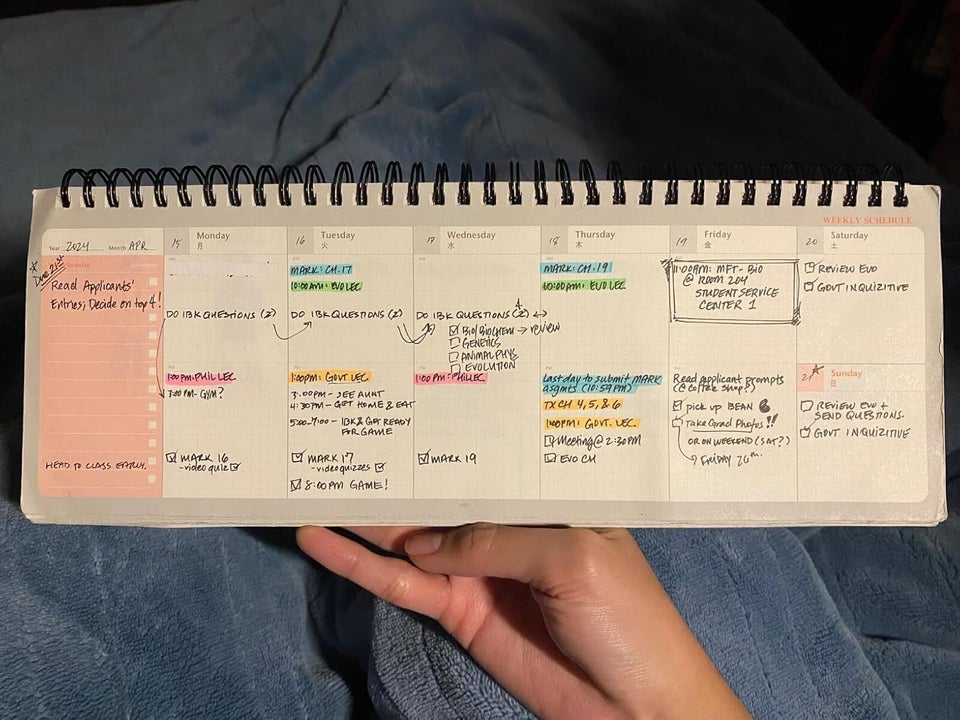 WEEKLY SCHEDULE
Year 2024 Month APR
* Due 21st
Read Applicants'
Entries; Decide on top 4!
HEAD TO CLASS EARLY.
15 Monday
月
DO IBK QUESTIONS (2)
1:00 PM: PHIL LEC
3:00 PM- GYM?
MARK 16
- video quiz
16 Tuesday
火
MARK: CH. 17
10:00AM: EVO LEC
DO IBK QUESTIONS (2)
1:00PM: GOVT LEC
3:00PM - SEE AUNT
4:30PM - GET HOME & EAT
5:00-7:00 - IBK & GET READY
FOR GAME
MARK 17
- video quizzes
8:00PM GAME!
17 Wednesday
水
4
DO IBK QUESTIONS (2)
BIO/BIOCHEM → review
GENETICS
ANIMAL PHYS
EVOLUTION
1:00 PM: PHIL LEC
MARK 19
18 Thursday
木
MARK: CH. 19
10:00AM: EVO LEC
Last day to submit MARK
asgmts (10:59PM)
TX CH 4, 5, & 6
1:00PM: GOVT. LEC.
Meeting @ 2:30PM
EVO CH
19 Friday
金
11:00AM: MFT-BIO
@ ROOM 204
STUDENT SERVICE
CENTER 1
Read applicant prompts
(@ coffee shop?)
pick up BEAN
Take Grad Photos!!
OR ON WEEKEND (SAT?)
→ FRIDAY 26th.
20 Saturday
土
REVIEW EVO
GOVT INQUIZITIVE
21 * Sunday
日
REVIEW EVO +
SEND QUESTIONS.
GOVT INQUIZITIVE